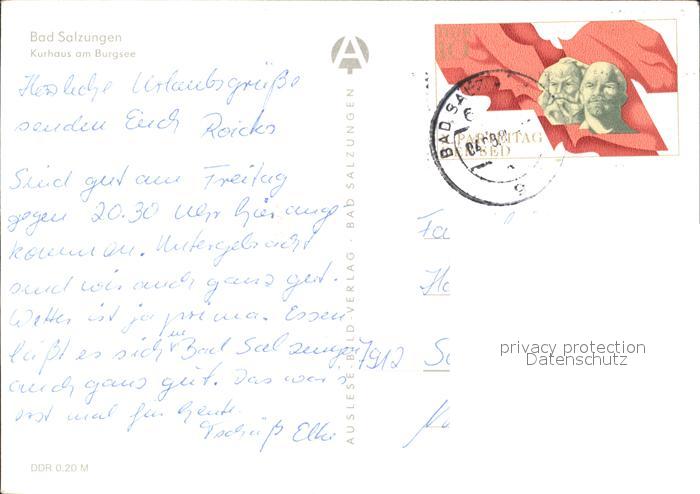 Bad Salzungen
Kurhaus am Burgsee
Herzliche Urlaubsgrüße
senden Euch Roicks
Sind gut am Freitag
gegen 20.30 Uhr hier ange
kommen. Untergebracht
sind wir auch ganz gut.
Wetter ist ja prima. Essen
läßt es sich in Bad Salzungen
auch ganz gut. Das war's
erst mal für heute.
Tschüß Elke
DDR 0.20 M
AUSLESE-BILD-VERLAG · BAD SALZUNGEN
DDR
PARTEITAG
SED
BAD SA
Fa
7912
privacy protection
Datenschutz